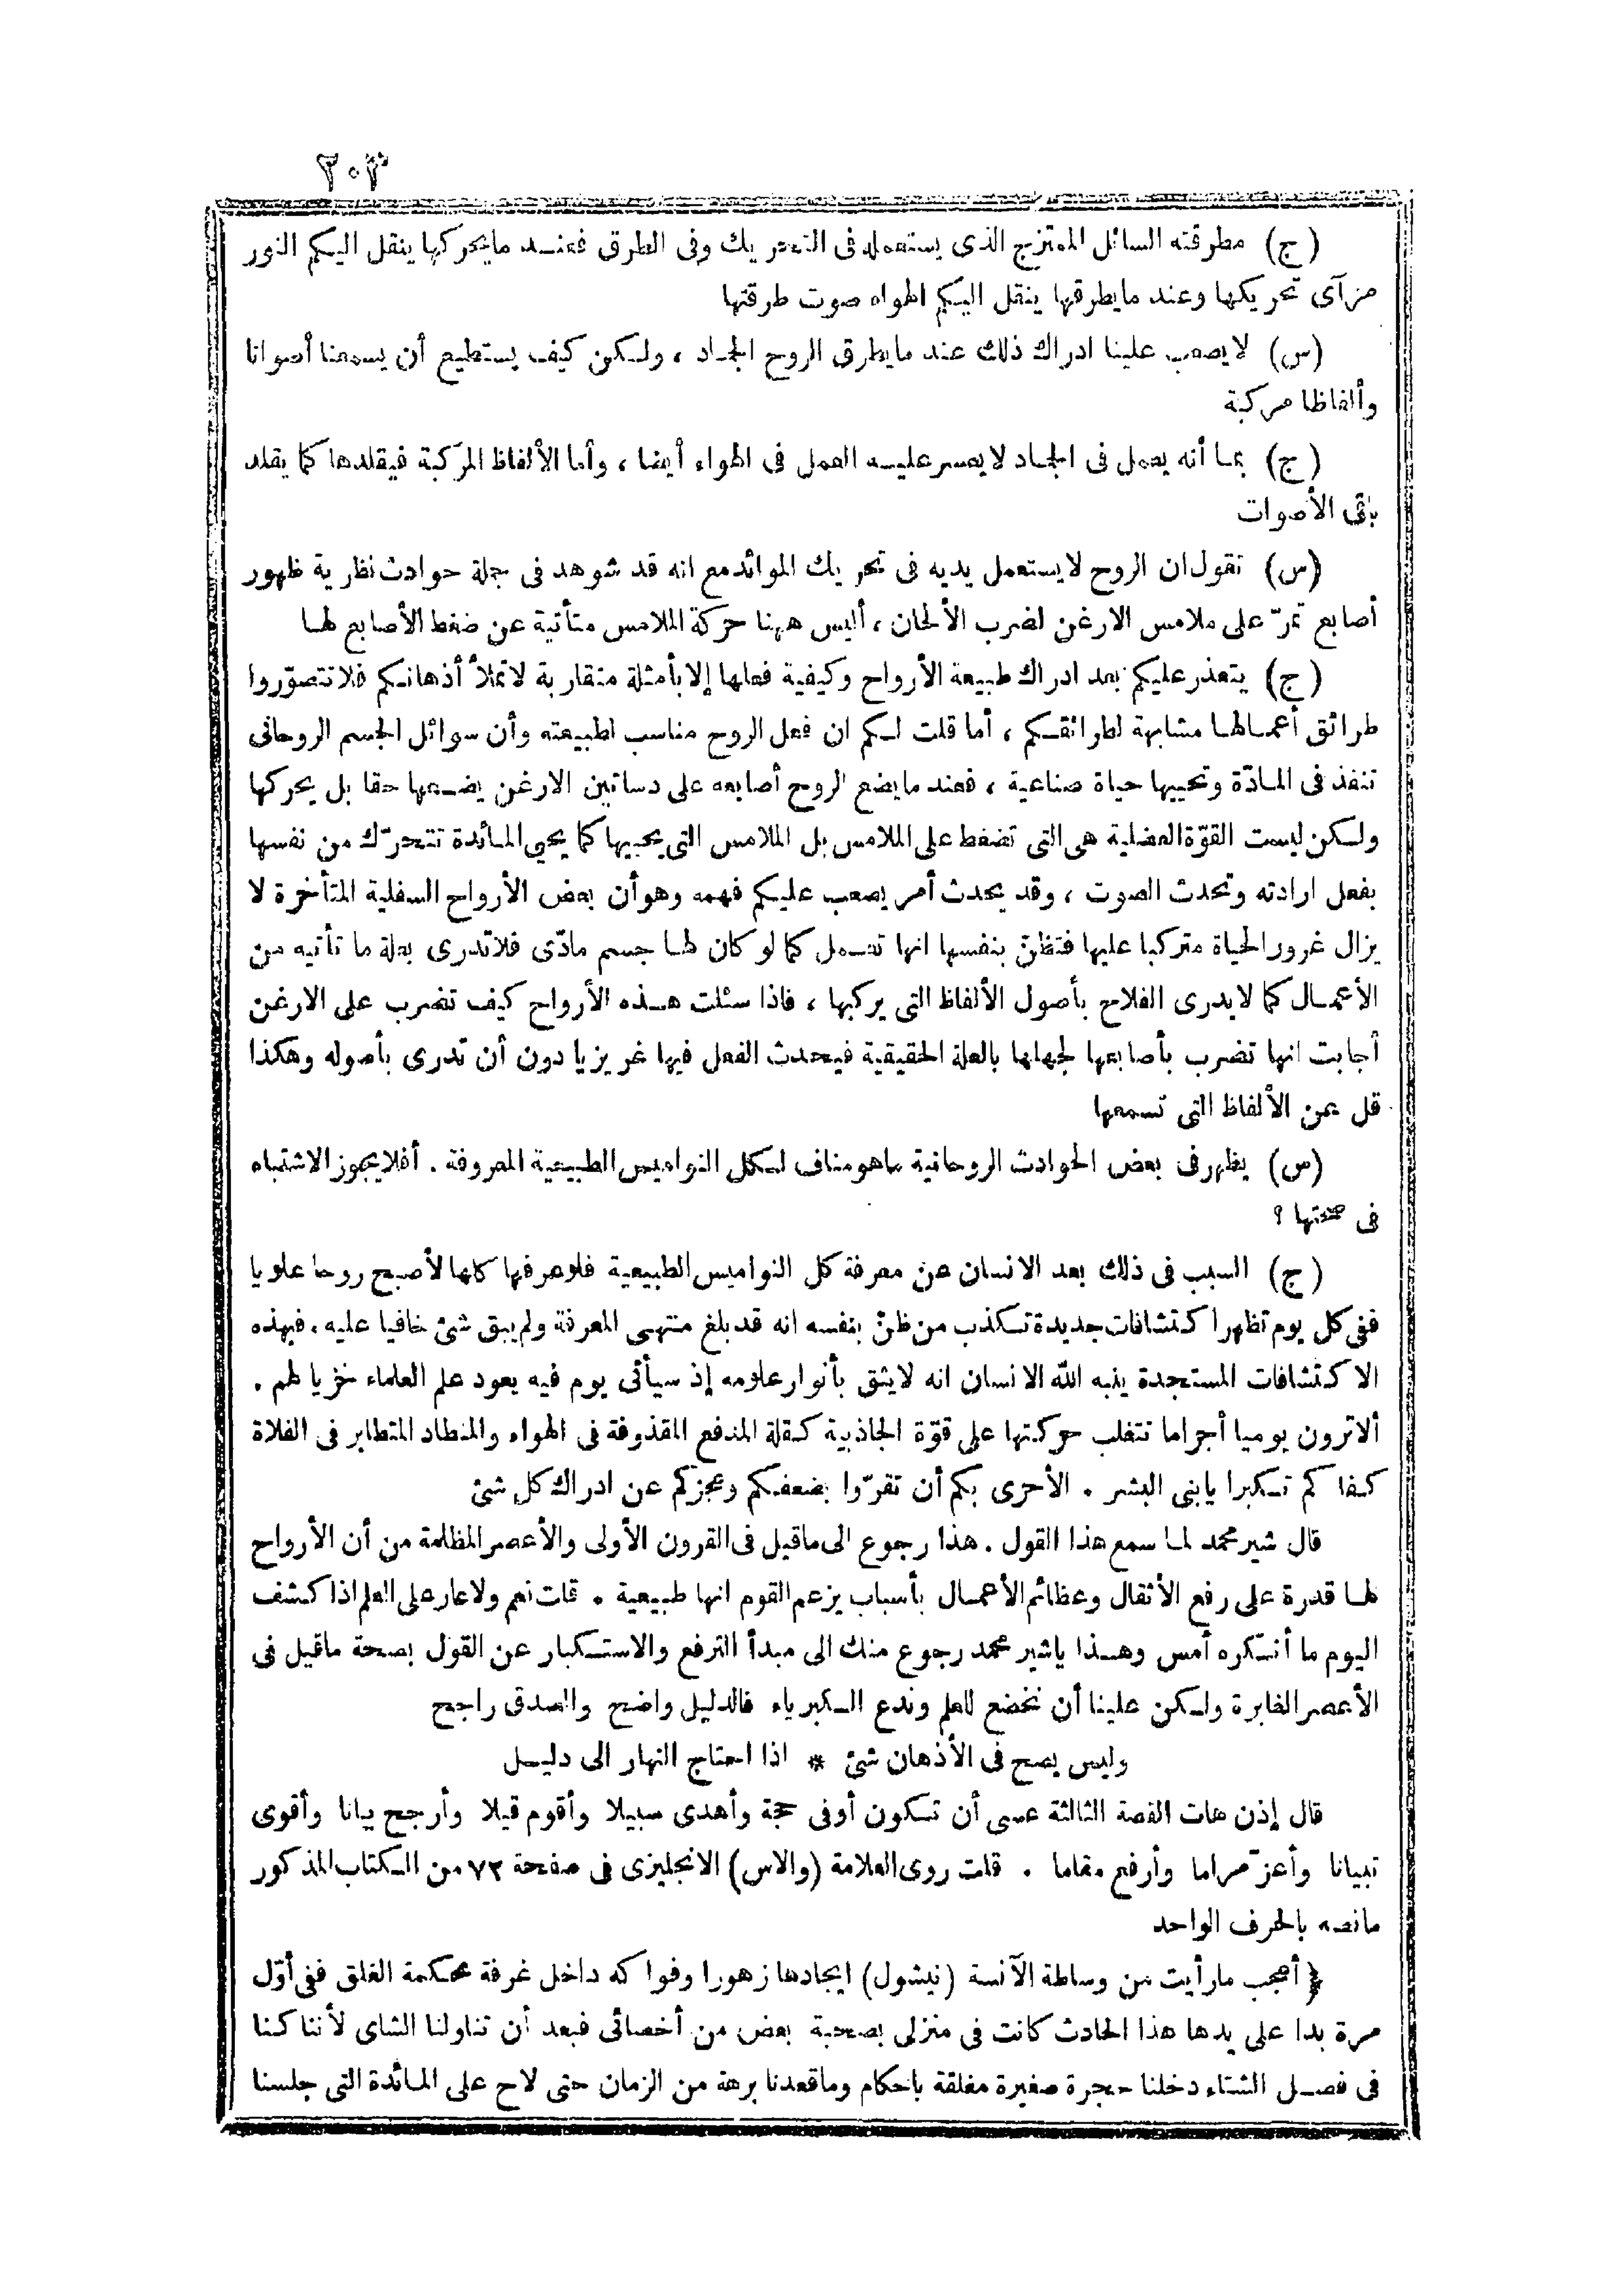 ٢٠٣
(ج) مطرقته السائل الممتزج الذى يستعمله فى التحريك وفى الطرق فعند ما يحركها ينقل اليكم النور
مرآى تحريكها وعند ما يطرقها ينقل اليكم الهواء صوت طرقتها
(س) لا يصعب علينا ادراك ذلك عند ما يطرق الروح الجماد ، ولكن كيف يستطيع أن يسمعنا أصواتا
وألفاظا مركبة
(ج) بما أنه يعمل فى الجماد لا يعسر عليه العمل فى الهواء أيضا ، وأما الألفاظ المركبة فيقلدها كما يقلد
باقى الأصوات
(س) تقول ان الروح لا يستعمل يديه فى تحريك الموائد مع انه قد شوهد فى جملة حوادث نظرية ظهور
أصابع تمرّ على ملامس الارغن لضرب الألحان ، أليس ههنا حركة الملامس متأتية عن ضغط الأصابع لها
(ج) يتعذر عليكم بعد ادراك طبيعة الأرواح وكيفية فعلها إلا بأمثلة متقاربة لا تملأ أذهانكم فلا تتصوّروا
طرائق أعمالها مشابهة لطرائقكم ، أما قلت لكم ان فعل الروح مناسب لطبيعته وأن سوائل الجسم الروحانى
تنفذ فى المادّة وتحييها حياة صناعية ، فعند ما يضع الروح أصابعه على دساتين الارغن يضعها حقا بل يحركها
ولكن ليست القوّة العضلية هى التى تضغط على الملامس بل الملامس التى يحييها كما يحيى المائدة تتحرّك من نفسها
بفعل ارادته وتحدث الصوت ، وقد يحدث أمر يصعب عليكم فهمه وهو أن بعض الأرواح السفلية المتأخرة لا
يزال غرور الحياة متركبا عليها فتظنّ بنفسها انها تعمل كما لو كان لها جسم مادّى فلا تدرى بعلة ما تأتيه من
الأعمال كما لا يدرى الفلاح بأصول الألفاظ التى يركبها ، فاذا سئلت هذه الأرواح كيف تضرب على الارغن
أجابت انها تضرب بأصابعها لجهلها بالعلة الحقيقية فيحدث الفعل فيها غريزيا دون أن تدرى بأصوله وهكذا
قل عن الألفاظ التى تسمعها
(س) يظهر فى بعض الحوادث الروحانية ما هو مناف لكل النواميس الطبيعية المعروفة . أفلا يجوز الاشتباه
فى صحتها ؟
(ج) السبب فى ذلك بعد الانسان عن معرفة كل النواميس الطبيعية فلو عرفها كلها لأصبح روحا علويا
ففى كل يوم تظهر اكتشافات جديدة تكذب من ظنّ بنفسه انه قد بلغ منتهى المعرفة ولم يبق شئ خافيا عليه . فبهذه
الاكتشافات المستجدة ينبه الله الانسان انه لا يثق بأنوار علومه إذ سيأتى يوم فيه يعود علم العلماء خزيا لهم .
ألا ترون يوميا أجراما تتغلب حركتها على قوّة الجاذبية كقلة المدفع المقذوفة فى الهواء والمنطاد المتطاير فى الفلاة
كفا كم تكبرا يا بنى البشر . الأحرى بكم أن تقرّوا بضعفكم وعجزكم عن ادراك كل شئ
قال شير محمد لما سمع هذا القول . هذا رجوع الى ما قيل فى القرون الأولى والأعصر المظلمة من أن الأرواح
لها قدرة على رفع الأثقال وعظائم الأعمال بأسباب يزعم القوم انها طبيعية . قلت نعم ولا عار على العلم اذا كشف
اليوم ما أنكره أمس وهذا يا شير محمد رجوع منك الى مبدأ الترفع والاستكبار عن القول بصحة ما قيل فى
الأعصر الغابرة ولكن علينا أن نخضع للعلم وندع الكبرياء فالدليل واضح والصدق راجح
وليس يصح فى الأذهان شئ * اذا احتاج النهار الى دليل
قال إذن هات القصة الثالثة عسى أن تكون أوفى حجة وأهدى سبيلا وأقوم قيلا وأرجح بيانا وأقوى
تبيانا وأعزّ مراما وأرفع مقاما . قلت روى العلامة (والاس) الانجليزى فى صفحة ٧٣ من الكتاب المذكور
ما نصه بالحرف الواحد
﴿ أعجب ما رأيت من وساطة الآنسة (نيشول) ايجادها زهورا وفواكه داخل غرفة محكمة الغلق ففى أوّل
مرة بدا على يدها هذا الحادث كانت فى منزلى بصحبة بعض من أخصائى فبعد أن تناولنا الشاى لأننا كنا
فى فصل الشتاء دخلنا حجرة صغيرة مغلقة باحكام وما قعدنا برهة من الزمان حتى لاح على المائدة التى جلسنا